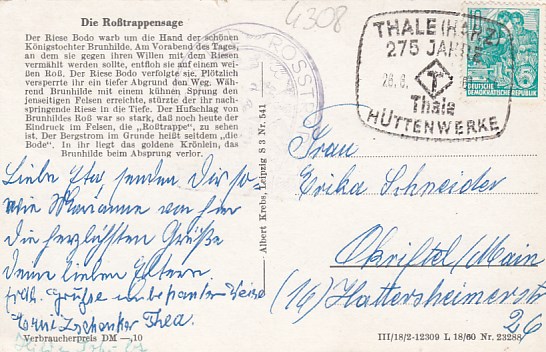 4308
Die Roßtrappensage
Der Riese Bodo warb um die Hand der schönen
Königstochter Brunhilde. Am Vorabend des Tages,
an dem sie gegen ihren Willen mit dem Riesen
vermählt werden sollte, entfloh sie auf einem wei-
ßen Roß. Der Riese Bodo verfolgte sie. Plötzlich
versperrte ihr ein tiefer Abgrund den Weg. Wäh-
rend Brunhilde mit einem kühnen Sprung den
jenseitigen Felsen erreichte, stürzte der ihr nach-
springende Riese in die Tiefe. Der Hufschlag von
Brunhildes Roß war so stark, daß noch heute der
Eindruck im Felsen, die „Roßtrappe”, zu sehen
ist. Der Bergstrom im Grunde heißt seitdem „die
Bode”. In ihr liegt das goldene Krönlein, das
Brunhilde beim Absprung verlor.
THALE (HARZ)
275 JAHRE
Thale
HÜTTENWERKE
DEUTSCHE
DEMOKRATISCHE REPUBLIK
Albert Krebs, Leipzig S 3 Nr. 541
Liebe senden Dir so
wie Marianne von hier
die herzlichsten Grüße
Deine lieben Eltern.
unbekannter Weise
Thea.
Frau
Erika Schneider
Okriftel/Main
(16) Hattersheimerstr
26
Verbraucherpreis DM —,10
III/18/2-12309 L 18/60 Nr. 23288